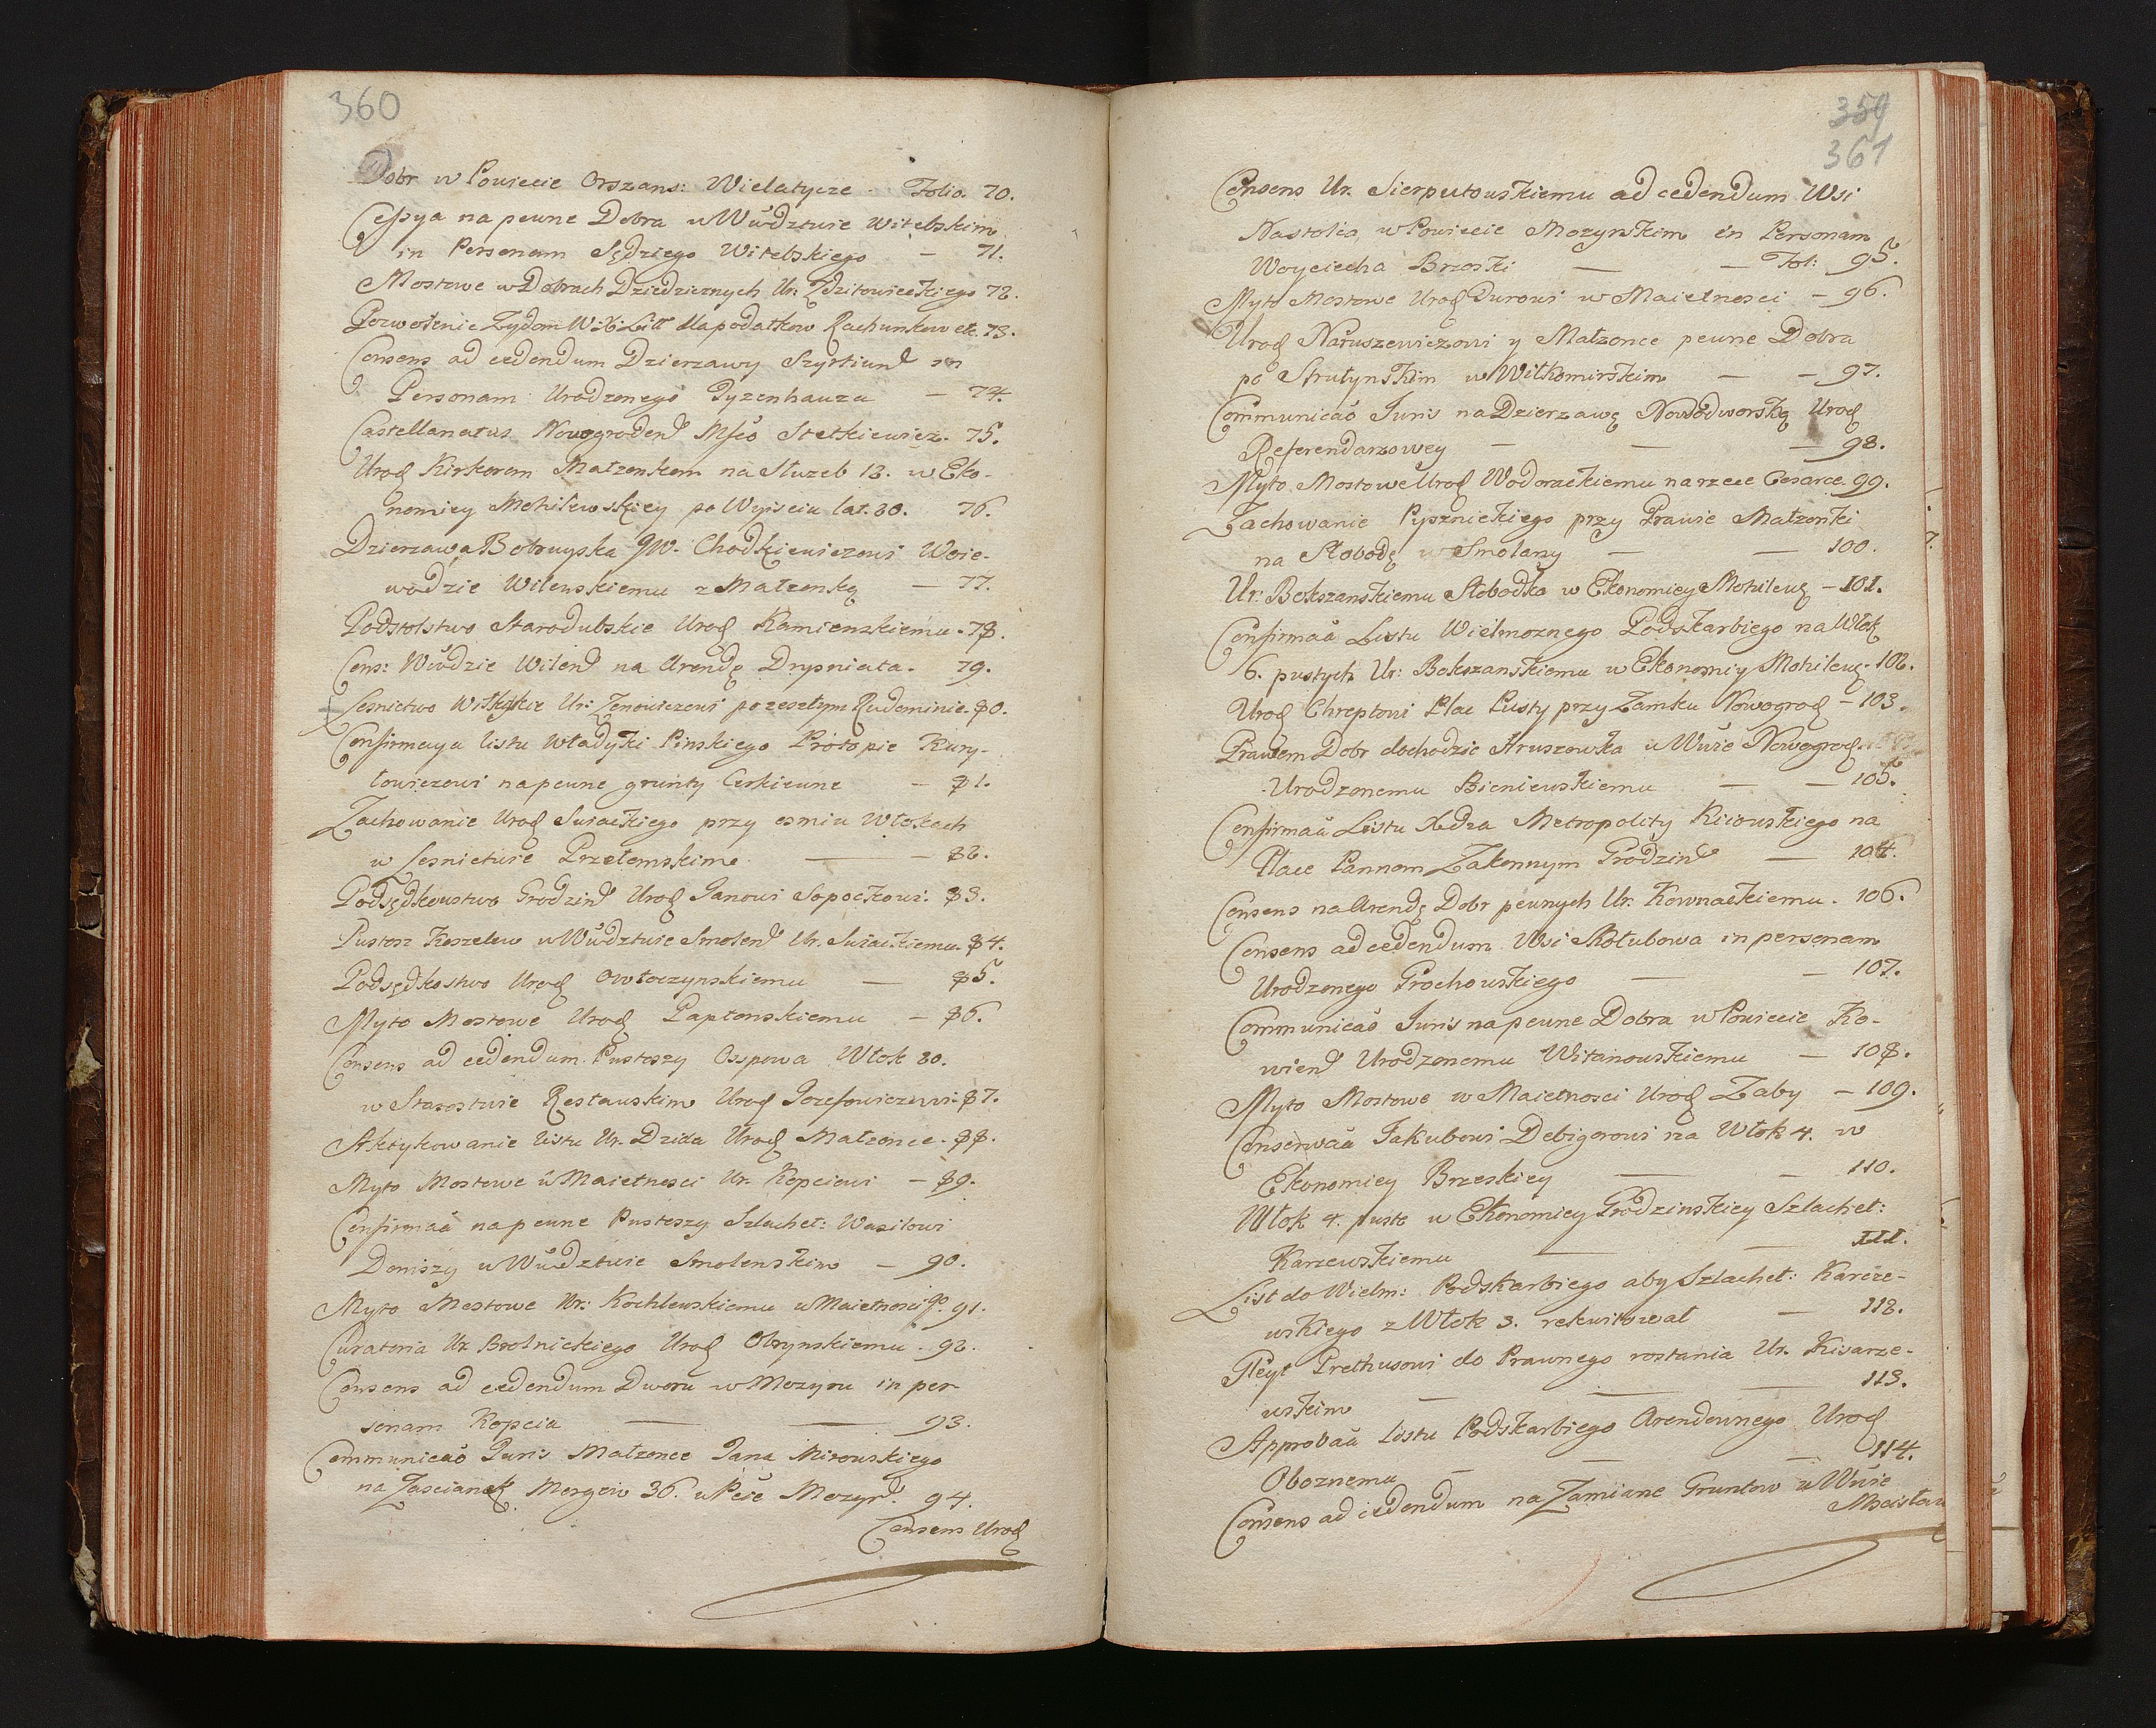 360
Dobr w Powiecie Orszans: Wielatycze Folio. 70.
Cessya na pewne Dobra w Wudztwie Witebskim
in Personam Sędziego Witebskiego — 71.
Mostowe w Dobrach Dziedzicznych Ur: Zdzitowieckiego 72.
Pozwolenie Zydom W: X: Litt dla podatkow Rachunkow etc. 73.
Consens ad cedendum Dzierzawy Szyrtiund in
Personam Urodzonego Tyzenhauza — 74.
Castellanatus Nowogroden Mśco Stetkiewicz. 75.
Urod Kirkorom Małzonkom na Słuzeb 12. w Eko-
nomiey Mohilewskiey po Wyisciu lat. 20. 76.
Dzierzawa Bobruyska JW. Chodkiewiczowi Woie-
wodzie Wilenskiemu z Małzonką — 77.
Podstolstwo Starodubskie Urod Kamienskiemu. 78.
Cons: Wwodzie Wilen na Arendę Drypniata. 79.
Lesnictwo Wilkiskie Ur: Zenowiczowi po zeszłym Rudominie. 80.
Confirmacya listu Władyki Pinskiego Protopie Kury-
łowiczowi na pewne grunty Cerkiewne — 81.
Zachowanie Urod Swiackiego przy osmiu Włokach
w Lesnictwie Przełomskim — — 82.
Podsędkowstwo Grodzin Urod Janowi Sopockowi. 83.
Pustosz Koszelew w Wudztwie Smolen Ur. Swiackiemu. 84.
Podsędkostwo Urod Owłoczynskiemu — 85.
Myto Mostowe Urod Paptonskiemu — 86.
Consens ad cedendum Pustoszy Osspowa Włok 20.
w Starostwie Restawskim Urod Jozefowiczowi. 87.
Aktykowanie listu Ur. Dzida Urod Małzonce. 88.
Myto Mostowe w Maietnosci Ur. Kopciowi — 89.
Confirmaã na pewne Pustoszy Szlachet: Wasilowi
Doniszy w Wudztwie Smolenskim — 90.
Myto Mostowe Ur: Kochlewskiemu w Maietnosci Jo. 91.
Curatoria Ur. Brolnickiego Urod Obrynskiemu. 92.
Consens ad cedendum Dworu w Mozyru in per-
sonam Kopcia — — 93.
Communicaõ Juris Małzonce Jana Mirowskiego
na Zascianek Morgow 36. w Pcie Mozyr. 94.
Consens Urod
359
361
Consens Ur. Sierputowskiemu ad cedendum Wsi
Nastolia w Powiecie Mozyrskim in Personam
Woyciecha Brzoski — — Fol: 95.
Myto Mostowe Urod Durowi w Maietnosci — 96.
Urod Naruszewiczowi y Małzonce pewne Dobra
po Strutynskim w Wiłkomirskim — — 97.
Communicaõ Juris na Dzierzawę Nowodworską Urod
Referendarzowey — — — 98.
Myto Mostowe Urod Wodorackiemu na rzece Cesarce. 99.
Zachowanie Pysznickiego przy Prawie Małzonki
na Słobodę w Smolany — — 100.
Ur. Bokszanskiemu Słobodka w Ekonomiey Mohilew — 101.
Confirmaã Listu Wielmoznego Podskarbiego na Włok
6. pustych Ur: Bokszanskiemu w Ekonomiy Mohilew. 102.
Urod Chreptowi Plac Pusty przy Zamku Nowogrod — 103.
Prawem Dobr dochodzic Hruszowka w Wwie Nowogrod.
Urodzonemu Bieniewskiemu — — 105.
Confirmaã Listu Xdza Metropolity Kiiowskiego na
Place Pannom Zakonnym Grodzin — 104.
Consens na Arendę Dobr pewnych Ur. Kownackiemu. 106.
Consens ad cedendum Wsi Skołubowa in personam
Urodzonego Grochowskiego — — 107.
Communicaõ Juris na pewne Dobra w Powiecie Ko-
wien Urodzonemu Witanowskiemu — 108.
Myto Mostowe w Maietnosci Urod Zaby — 109.
Conserwaã Jakubowi Debigorowi na Włok 4. w
Ekonomiey Brzeskiey — — 110.
Włok 4. pusto w Ekonomiey Grodzinskiey Szlachet:
Karzewskiemu — — 111.
List do Wielm: Podskarbiego aby Szlachet: Karcze-
wskiego z Włok 3. rekwitował — 112.
Gleyt Prethusowi do Prawnego rostania Ur. Kisarze-
wskim — — — 113.
Approbaã Listu Podskarbiego Arendownego Urod
Oboznemu — — — 114.
Consens ad cedendum na Zamiane Gruntow w Wwie
Mscisław